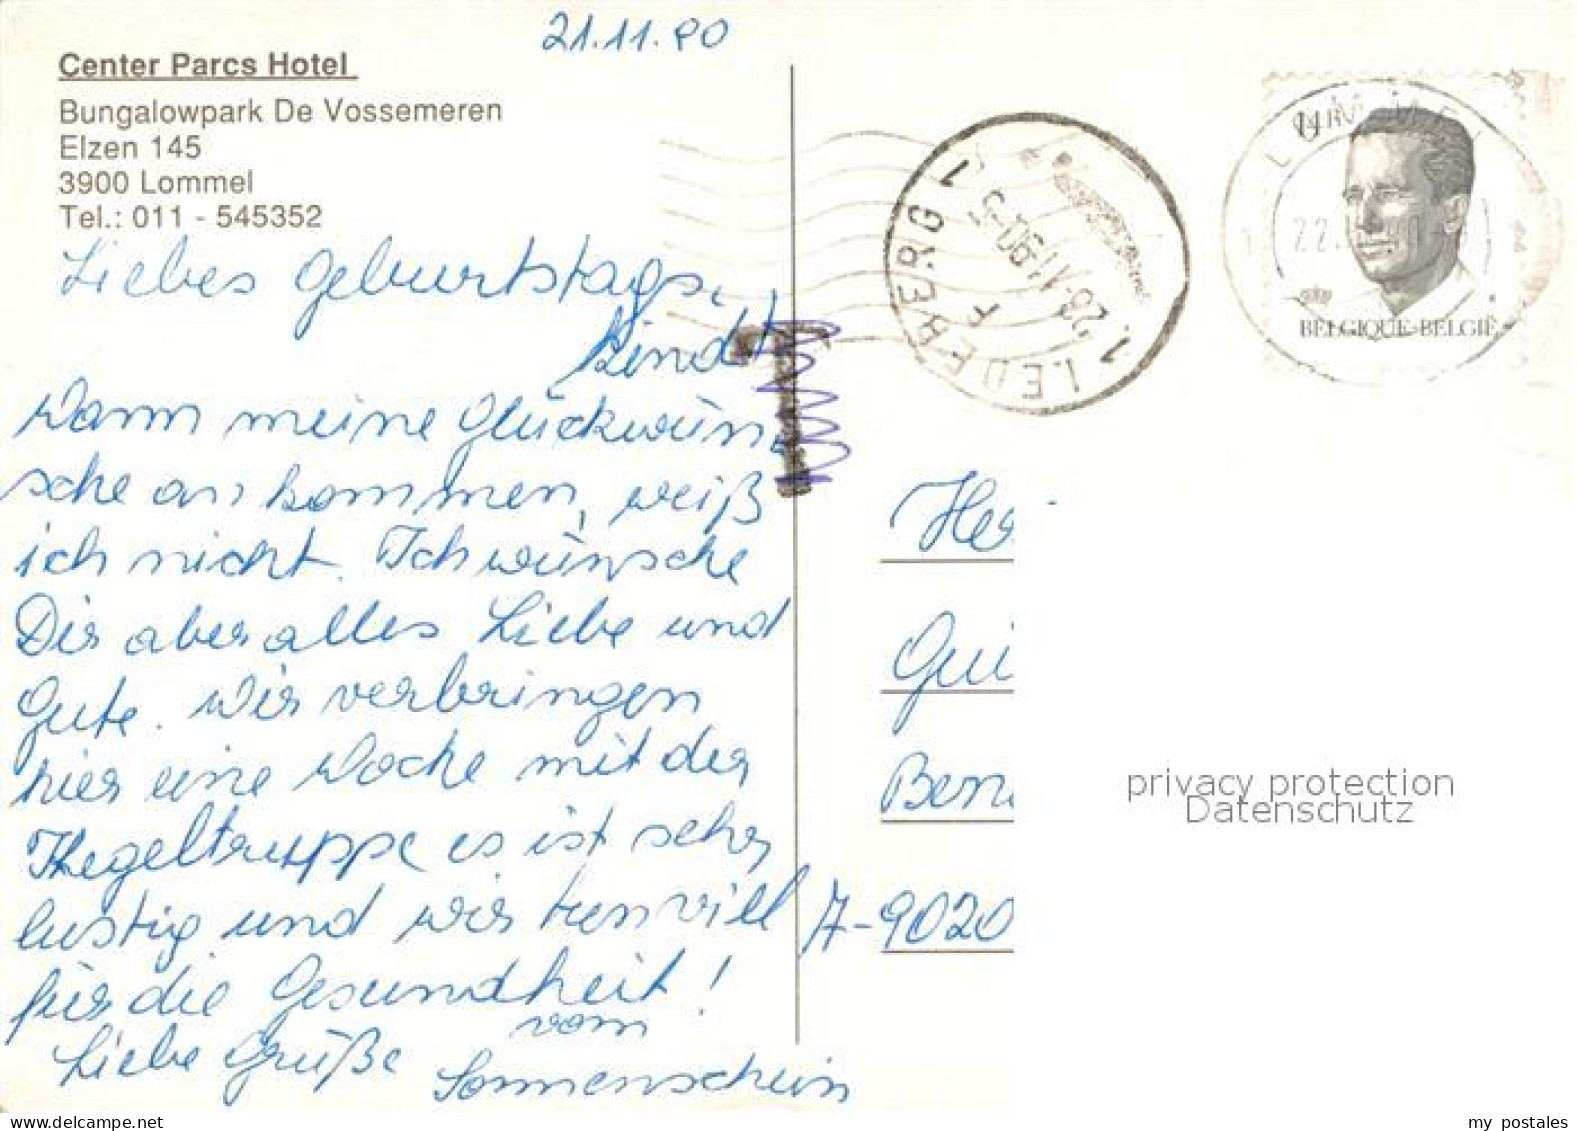 21.11.90
Center Parcs Hotel
Bungalowpark De Vossemeren
Elzen 145
3900 Lommel
Tel.: 011 - 545352
Liebes Geburtstags-
kind!
Wann meine Glückwün-
sche ankommen, weiß
ich nicht. Ich wünsche
Dir aber alles Liebe und
Gute. Wir verbringen
hier eine Woche mit der
Kegeltruppe es ist sehr
lustig und wir tun viel
für die Gesundheit!
Liebe Grüße vom
Sonnenschein
1 LEDEBERG 1
BELGIQUE-BELGIË
A-9020
privacy protection
Datenschutz
my postales